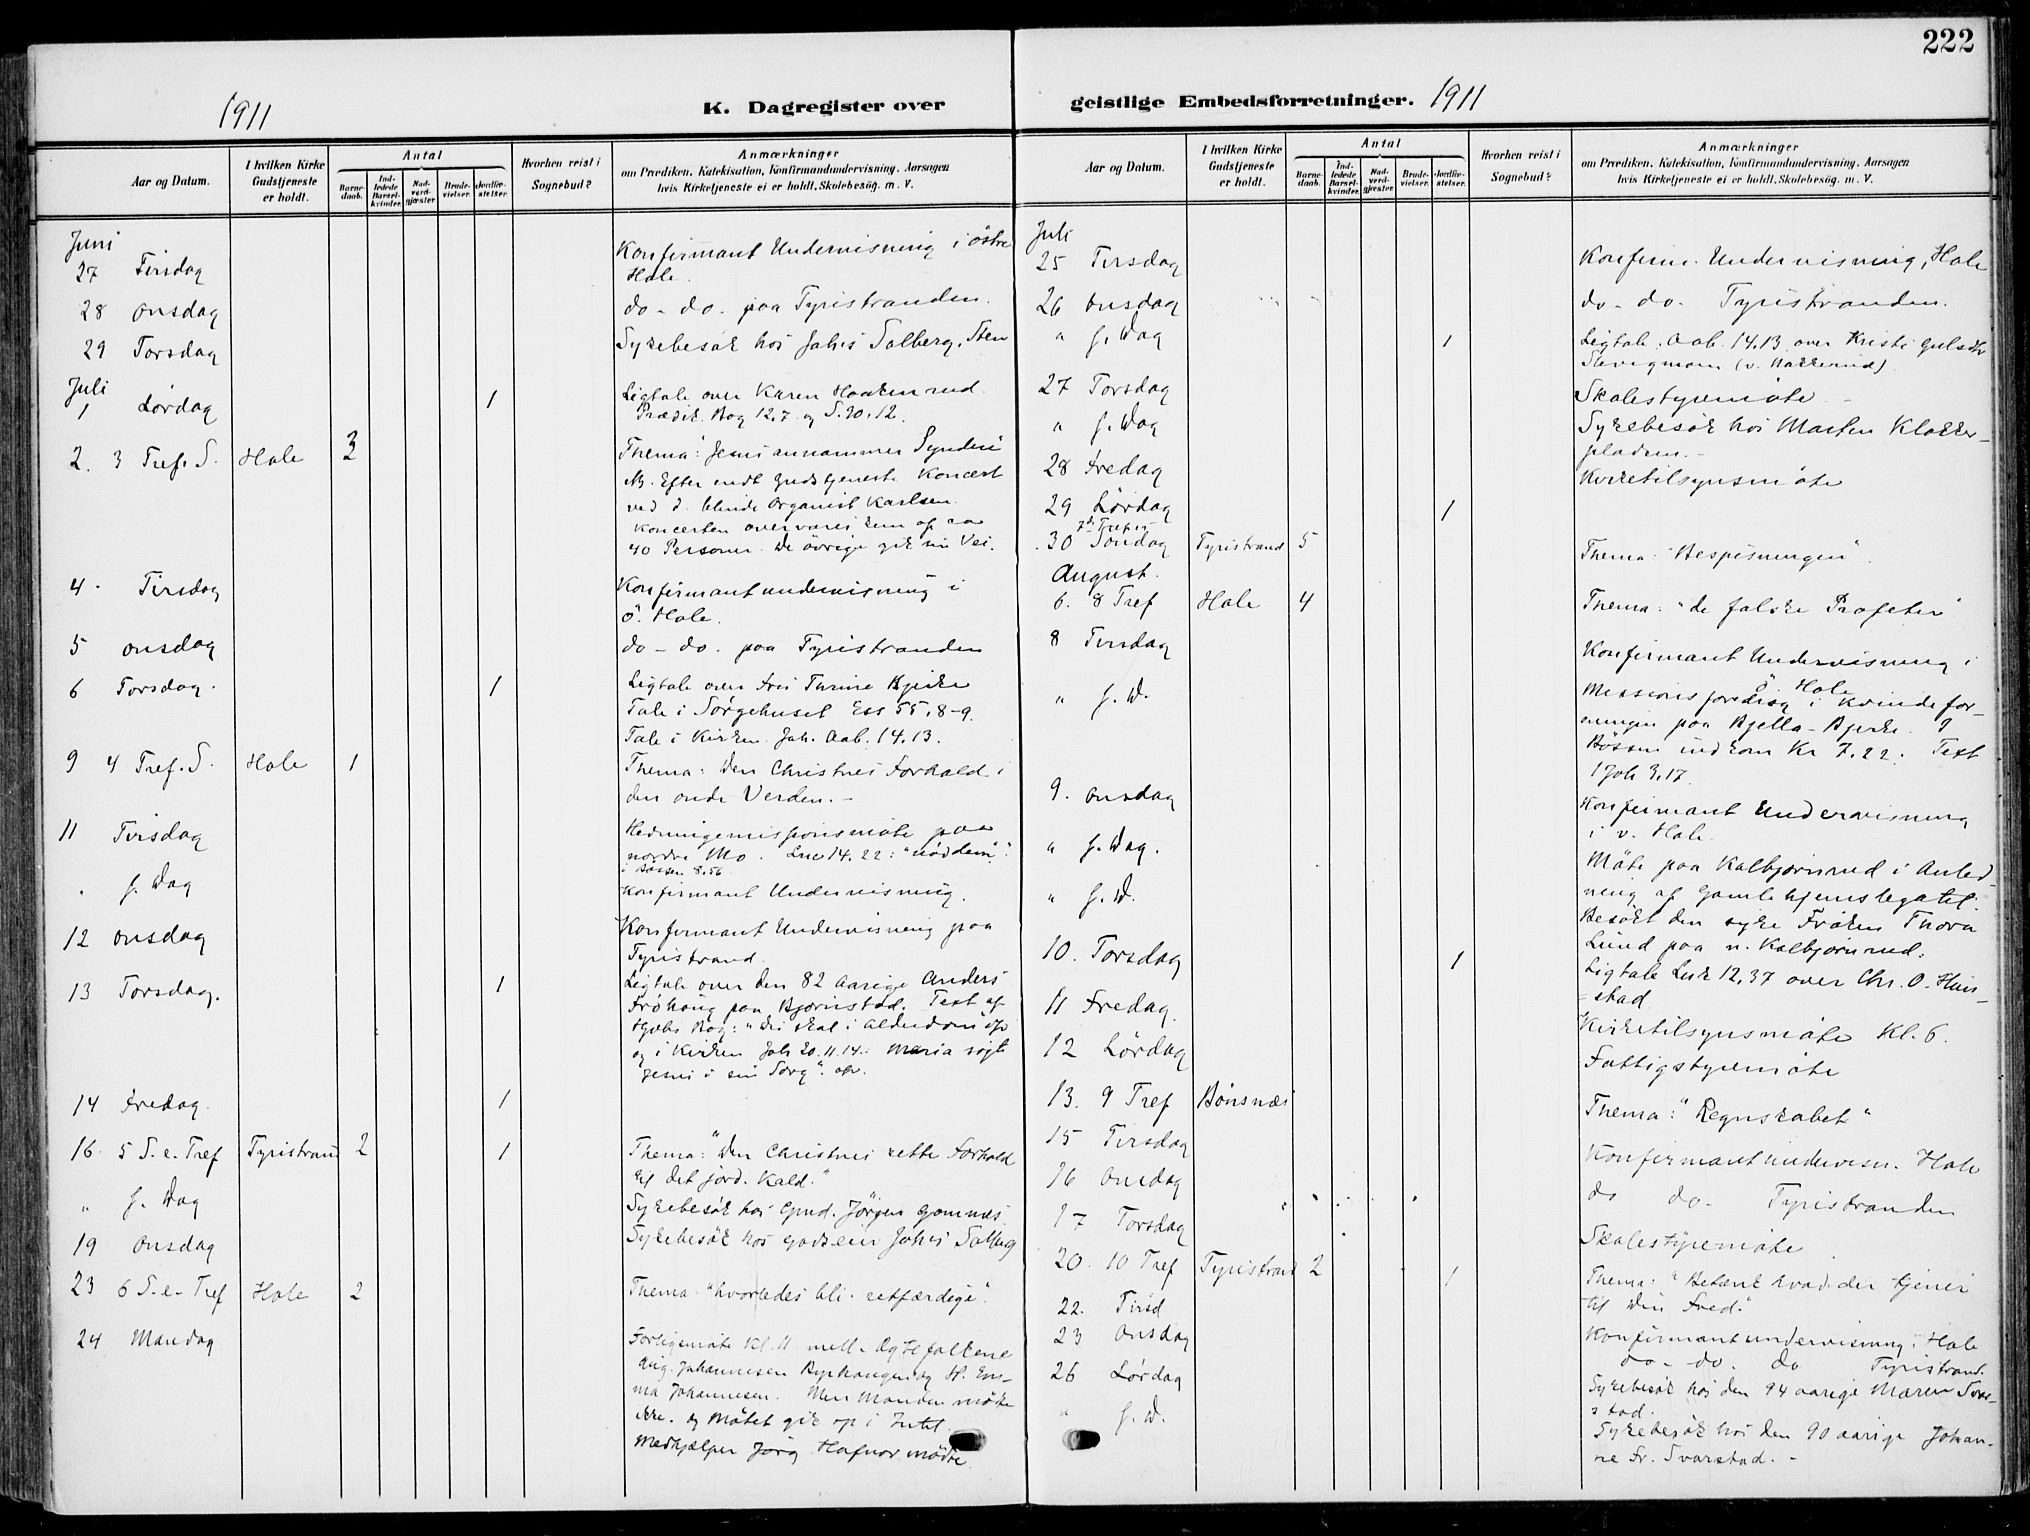 222
1911
K. Dagregister over
geistlige Embedsforretninger. 1911
Aar og Datum.
I hvilken Kirke
Gudstjeneste
er holdt.
Antal
Barne-
daab.
Ind-
ledede
Barsel-
kvinder.
Nad-
verd-
gjæster.
Brude-
vielser.
Jordfæ-
stelser.
Hvorhen reist i
Sognebud?
Anmærkninger
om Prædiken, Katekisation, Konfirmandundervisning, Aarsagen
hvis Kirketjeneste ei er holdt, Skolebesøg. m. V.
Juni
27 Tirsdag Konfirmant Undervisning i östre
Hole.
28 onsdag do - do. paa Tyristranden.
29 Torsdag Sykebesök hos Johs Solberg, Sten
Juli
1 Lørdag 1 Ligtale over Karen Haakenrud.
Prædik. Bog 12.7. og S. 30.12.
2. 3 Tref. S. Hole 3 Thema: "Jesus annammer Syndere"
NB. Efter endt Gudstjeneste Koncert
ved d. blinde Organist Karlsen.
Koncerten overvares kun af ca
40 Personer. De övrige gik sin Vei.
4. Tirsdag Konfirmantundervisning i
ö. Hole.
5 onsdag do - do. paa Tyristranden
6 Torsdag. 1 Ligtale over Frk Thrine Bjerke
Tale i Sørgehuset Ess 55, 8-9.
Tale i Kirken Joh. Aab. 14.13.
9 4 Tref. S. Hole 1 Thema: Den Christnes Forhold i
den onde Verden. -
11 Tirsdag Hedningemissionsmöte paa
nordre Mo. Luc 14.22: "nöddem".
i Bössen 8.56
. s. Dag Konfirmant Undervisning.
12 onsdag Konfirmant Undervisning paa
Tyristrand.
13 Torsdag. 1 Ligtale over den 82 aarige Anders
Fröhaug paa Bjørnstad. Text af
Hjobs Bog: "Du skal i Alderdom" osv
og i Kirken Joh 20.11.14: Maria søgte
Jesus i sin Sorg". osv.
14 Fredag. 1
16. 5 S. e. Tref Tyristrand 2 1 Thema: "Den Christnes rette Forhold
til det jord. Kald."
" s. Dag Sykebesök hos Gmd. Jörgen Gomnes.
19 onsdag Sykebesök hos Godseier Johs Solberg
23 6 S. e. Tref Hole 2 Thema "hvorledes bli retfærdige".
24 Mandag Forligsmöte Kl. 11 mell. Ægtefolkene
Aug. Johannesen Byrhaugen og H. Em-
ma Johannesen. Men Manden mötte
ikke. og Mötet gik op i Intet.
Medhjælper Jörg. Hafnor mödte.
Aar og Datum.
I hvilken Kirke
Gudstjeneste
er holdt.
Antal
Barne-
daab.
Ind-
ledede
Barsel-
kvinder.
Nad-
verd-
gjæster.
Brude-
vielser.
Jordfæ-
stelser.
Hvorhen reist i
Sognebud?
Anmærkninger
om Prædiken, Katekisation, Konfirmandundervisning, Aarsagen
hvis Kirketjeneste ei er holdt, Skolebesøg. m. V.
Juli
25 Tirsdag Konfirm. Undervisning, Hole
26 onsdag do - do - Tyristranden.
" s. Dag 1 Ligtale. Aab. 14.13 over Kristi
(v. Nakkerud)
27 Torsdag Skolestyremöte -
" s. Dag Sykebesök hos Marten Klokker-
pladsen. -
28 Fredag Kirketilsynsmöte
29 Lördag 1
7de Tref.
30 Söndag Tyristrand 5 Thema: "Bespisningen".
August.
6. 8 Tref Hole 4 Thema: "de falske Profeter"
8 Tirsdag Konfirmant Undervisning i
ö. Hole
" s. D. Missionsforedrag i Kvindefor-
ningen paa Bjella-Bjerke. I
Bössen indkom Kr 7.22. Text
1 Joh 3.17.
9. onsdag Konfirmant Undervisning
i v. Hole.
" s. Dag. Möte paa Kolbjørnsrud i Anled-
ning af Gamlehjemslegatet.
" s. D. Besökt den syke Fröken Thora
Lund paa n. Kolbjørnsrud.
10. Torsdag 1 Ligtale Luk 12, 37 over Chr. O. Hun-
stad
11 Fredag. Kirketilsynsmöte Kl. 6.
12 Lördag Fattigstyremöte
13. 9 Tref Bönsnæs Thema: "Regnskabet"
15 Tirsdag Konfirmantundervisn. Hole
16 onsdag do do. Tyristranden
17 Torsdag Skolestyremöte
20. 10 Tref Tyristrand 2 1 Thema: "Betænk hvad der tjener
til Din Fred."
22. Tirsd Konfirmantundervisning. Hole
23 onsdag do - do. do Tyristrand.
26 Lördag Sykebesök hos den 94 aarige Maren Svar-
stad.
" s. D. Sykebesök hos den 90 aarige Johan-
ne Fr. Svarstad. -